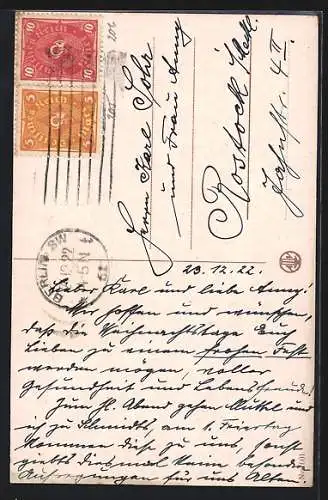 10 Deutsches Reich 10
5 Deutsches Reich 5
BERLIN SW
Herrn Karl Sohr
und Frau Anny
Rostock i/Meckl.
Jahnstr. 4 II.
23.12.22.
Lieber Karl und liebe Anny!
Wir hoffen und wünschen,
daß die Weihnachtstage Euch
Lieben zu einem frohen Fest
werden mögen, voller
Gesundheit und Lebensfreude!
Zum Hl. Abend gehen Muttel und
ich zu Schmidts, am 1. Feiertag
kommen diese zu uns, sonst
giebts diesmal keine besonderen
Aufregungen für uns Alten.